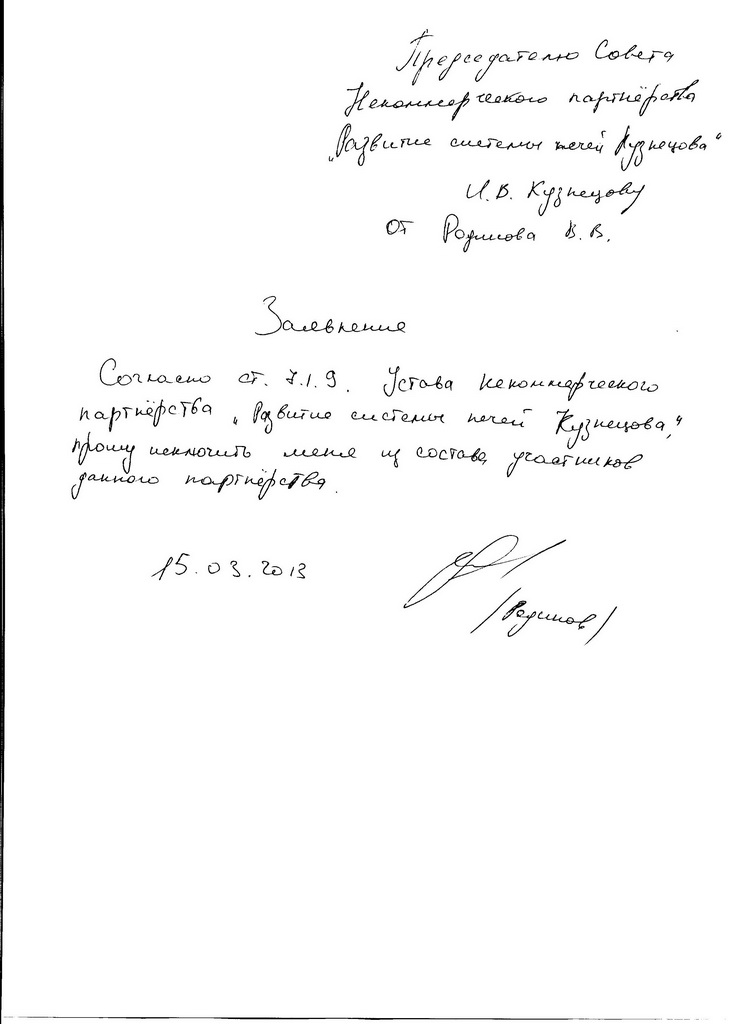 Председателю Совета
Некоммерческого партнёрства
„Развитие системы печей Кузнецова“
И.В. Кузнецову
от Родинова В.В.
Заявление
Согласно ст. 7.1.9. Устава некоммерческого
партнёрства „Развитие системы печей Кузнецова,“
прошу исключить меня из состава участников
данного партнёрства.
15.03.2013
/Родинов/